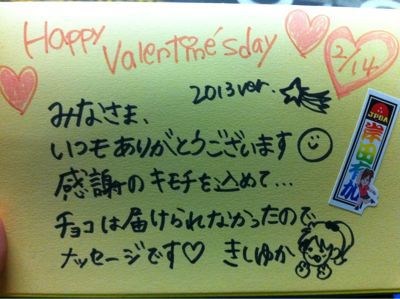 Happy Valentine'sday
2/14
2013 ver.
みなさま、
いつもありがとうございます
感謝のキモチを込めて…
チョコは届けられなかったので
メッセージです♡ きしゆか
JPBA
岸田有加